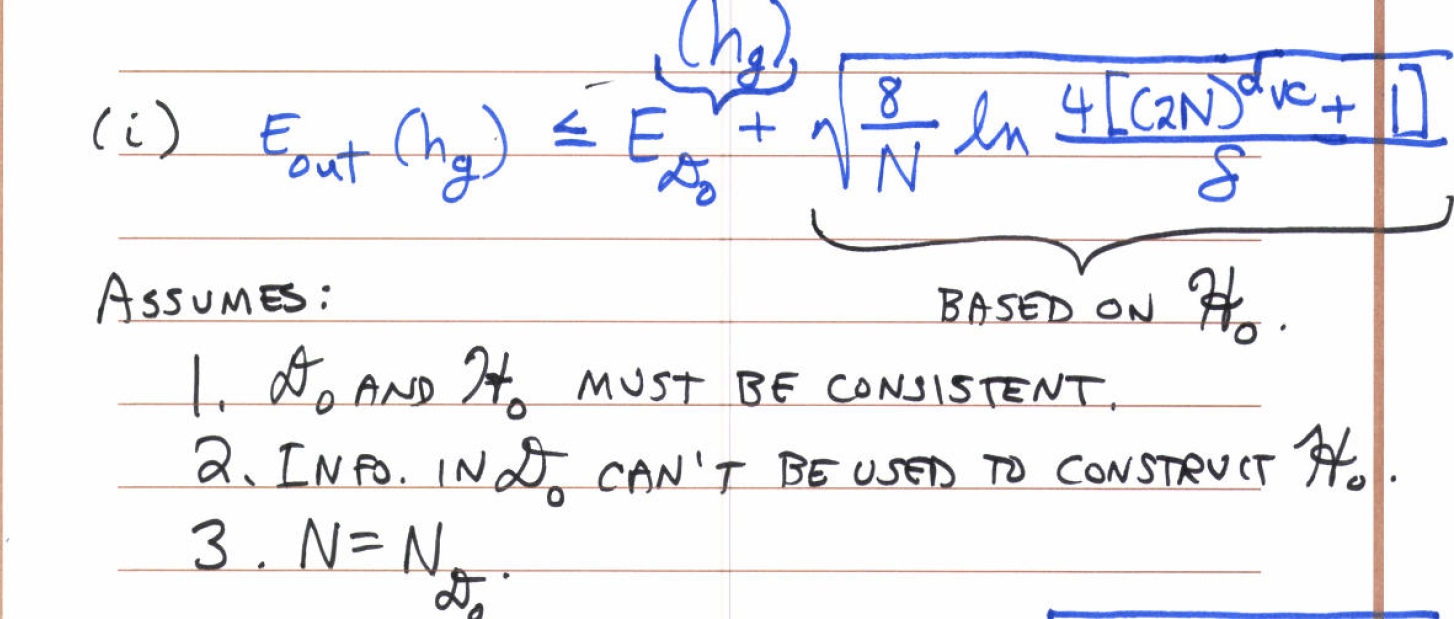 (i) E_out (h_g) ≤ E_𝒟₀ (h_g) + √(8/N ln 4[(2N)^d_vc + 1]/δ)
ASSUMES: BASED ON ℋ₀.
1. 𝒟₀ AND ℋ₀ MUST BE CONSISTENT.
2. INFO. IN 𝒟₀ CAN'T BE USED TO CONSTRUCT ℋ₀.
3. N = N_𝒟₀.